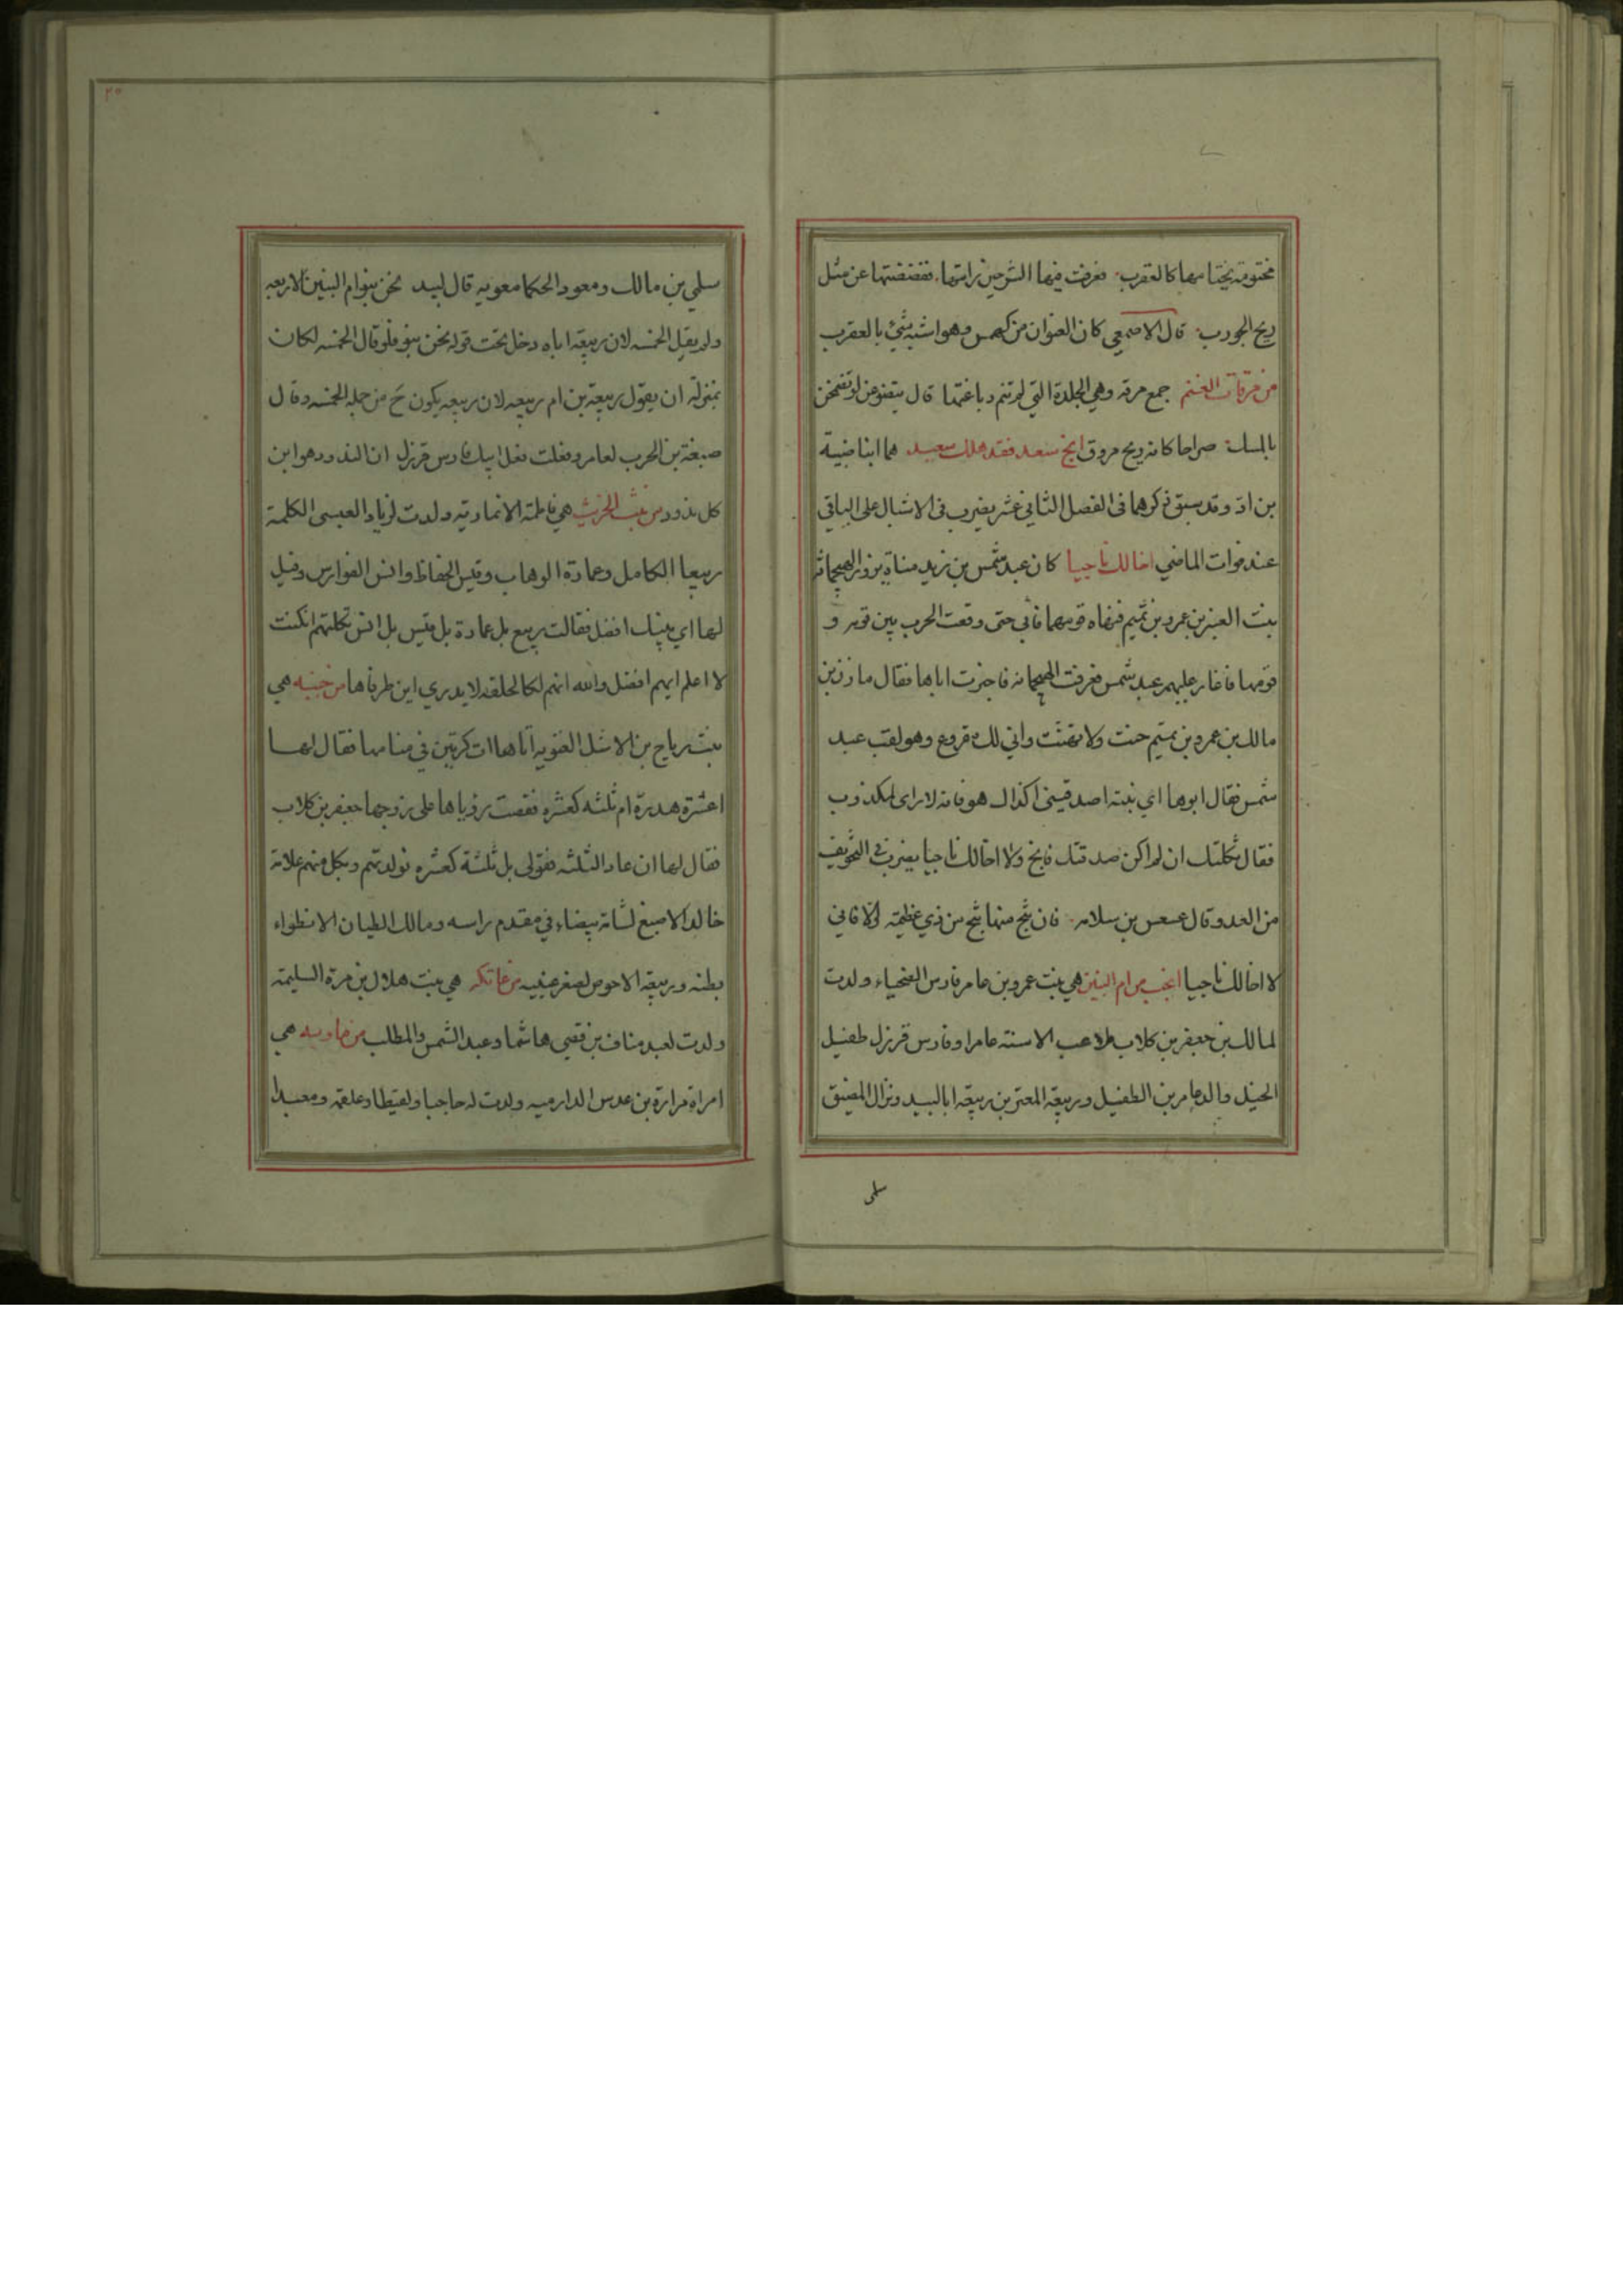 مختومة بختامها كالعقرب فعرفت فيها الشر حين رايتها ففضضتها عن مثل
ريح الجورب قال الاصمعي كان العنوان من كهمس وهو اشبه شيئ بالعقرب
من مرقات الغنم جمع مرقه وهي الجلدة التي لم تتم دباغتها قال
بالمسك صراحا كانه ريح مروق انج سعد فقد هلك سعيد هما ابنا ضبة
بن اد وقد سبق ذكرهما في الفصل الثاني عشر يضرب في الاشبال على الباقي
عند فوات الماضي اخا لك ناجيا كان عبد شمس بن زيد مناة يزور الهيجمانة
بنت العنبر بن عمرو بن تميم فنهاه قومها فابي حتى وقعت الحرب بين قومه و
قومها فاغار عليهم عبد شمس فعرفت الهيجمانه فاخبرت اباها فقال مازن بن
مالك بن عمرو بن تميم حنت ولا تهنت واني لك مقروع وهو لقب عبد
شمس فقال ابوها اي بنية اصدقيني اكذاك هو فانه لا راي لمكذوب
فقال ثكلتك ان لم اكن صدقتك فانج ولا اخالك ناجيا يضرب في التخويف
من العدو وقال عسعس بن سلامه فان تنج منها تنج من ذي عظيمة والا فاني
لا اخالك ناجيا انجب من ام البنين هي بنت عمرو بن عامر فارس الضحياء ولدت
لمالك بن جعفر بن كلاب ملاعب الاسنه عامرا وفارس قرزل طفيل
الخيل والد عامر بن الطفيل وربيعه المعترين ربيعه ابا لبيد ونزال المضيق
سلمى
٢٥
سلمي بن مالك ومعود الحكما معويه قال لبيد نحن بنو ام البنين الاربعه
ولم يقل الخمسه لان ربيعه اباه دخل تحت قوله نحن بنو فلو قال الخمسه لكان
بمنزلة ان يقول ربيعة بن ام ربيعه لان ربيعه يكون ح من جمله الخمسه وقال
بن الحرب لعامر وفعلت فعل ابيك فارس قرزل ان الندود هو ابن
كل ندود من بنت الخرشب هي فاطمة الانمارية ولدت لزياد العبسي الكلمة
ربيعا الكامل وعمارة الوهاب وقيس الحفاظ وانس الفوارس وقيل
لها اي بنيك افضل فقالت ربيع بل عمارة بل قيس بل انس ثكلتهم ان كنت
لا اعلم ايهم افضل والله انهم لكالحلقه لا يدري اين طرفاها من خبيئه هي
بنت رياح بن الاشل الغنويه اتاها ات كرتين في منامها فقال لها
اعشرة هدرة ام ثلثه كعشره فقصت رؤياها على زوجها جعفر بن كلاب
فقال لها ان عاد الثلثه فقولي بل ثلثة كعشره فولدتهم وبكل منهم علامة
خالد الاصبغ لشامة بيضاء في مقدم راسه ومالك الطيان لانطواء
بطنه وربيعه الاحوص لصغر عينيه من عاتكه هي بنت هلال بن مرة السليمة
ولدت لعبد مناف بن قصي هاشما وعبد الشمس والمطلب من ماويه هي
امراة زرارة بن عدس الدارميه ولدت له حاجبا ولقيطا وعلقمه ومعبدا